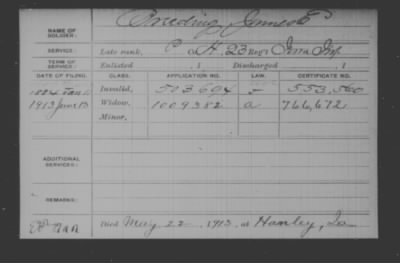 NAME OF SOLDIER:
SERVICE: Late rank, P Co H, 23 Reg't Iowa Inf
TERM OF SERVICE: Enlisted , 1 Discharged , 1
DATE OF FILING. CLASS. APPLICATION NO. LAW. CERTIFICATE NO.
1884 Jan Invalid, 503694 553,560
1913 June 13 Widow, 1009382 a 766,672
Minor,
ADDITIONAL SERVICES:
REMARKS:
Died May 22, 1913, at Hanley, Ia